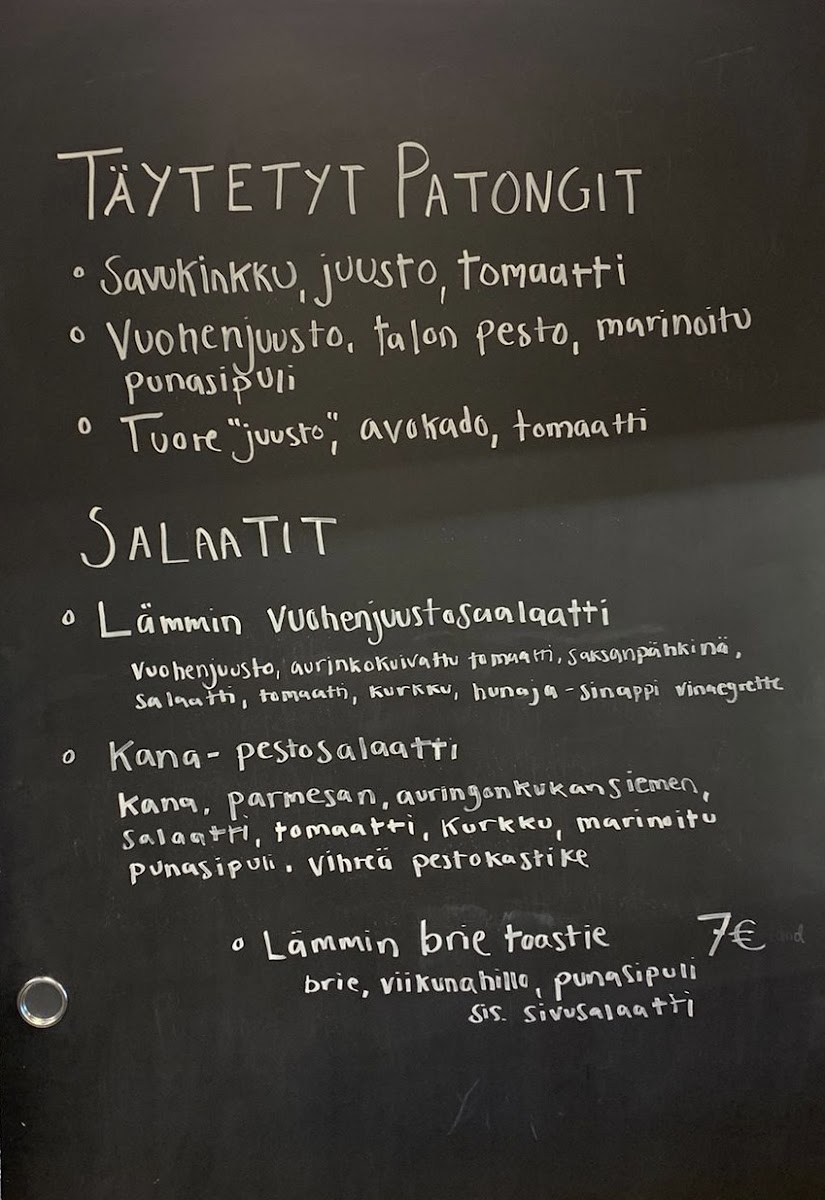 TÄYTETYT PATONGIT
° Savukinkku, juusto, tomaatti
° Vuohenjuusto, talon pesto, marinoitu
punasipuli
° Tuore "juusto", avokado, tomaatti
SALAATIT
° Lämmin vuohenjuustosaalaatti
vuohenjuusto, aurinkokuivattu tomaatti, saksanpähkinä,
salaatti, tomaatti, kurkku, hunaja-sinappi vinaegrette
° Kana-pestosalaatti
kana, parmesan, auringonkukansiemen,
salaatti, tomaatti, kurkku, marinoitu
punasipuli, vihreä pestokastike
° Lämmin brie toastie 7€
brie, viikunahillo, punasipuli
sis. sivusalaatti